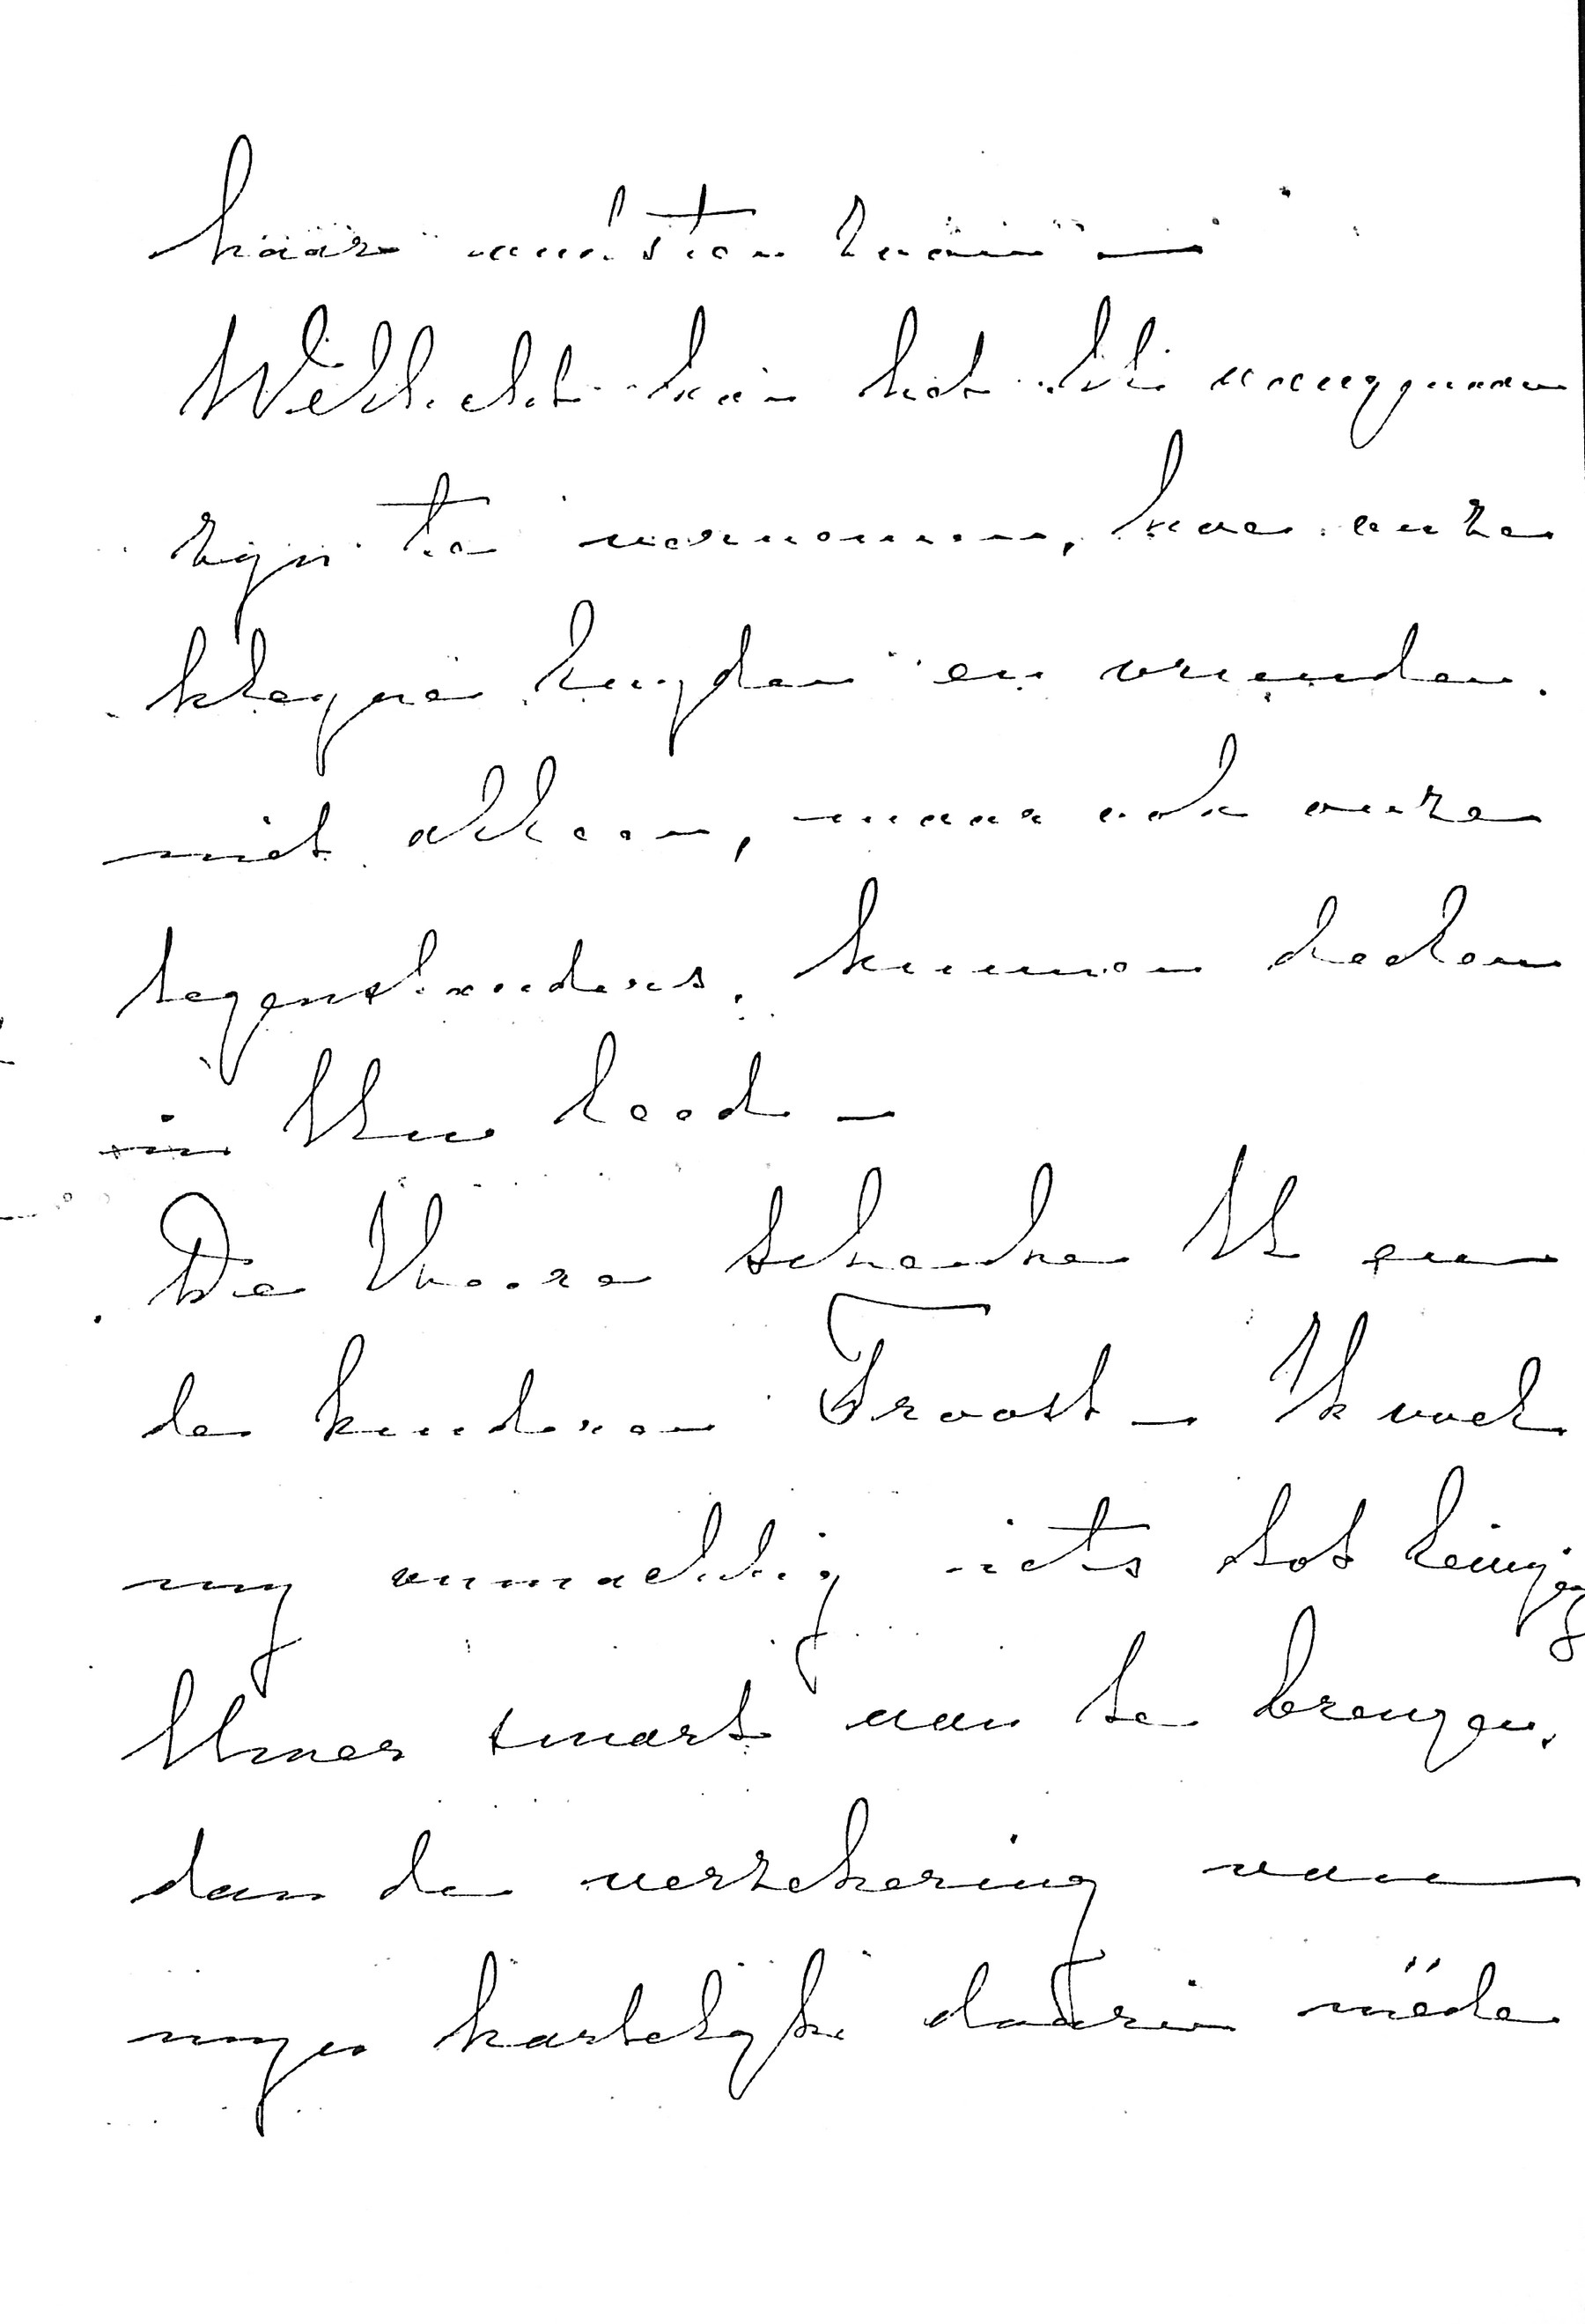 haar 
Wellicht kan het U aangenaam
zyn te vernemen, hoe onze
kleyne luyden en vrienden.
niet alleen, maar ook onze
tegenstanders. kunnen deelen
in Uw leed –
De Heere schenke U en
de kinderen Troost – Ik voel
my onmachtig iets tot leniging
Uwer smart aan te brengen.
dan de verzekering van
myn hartelyke daarin mede